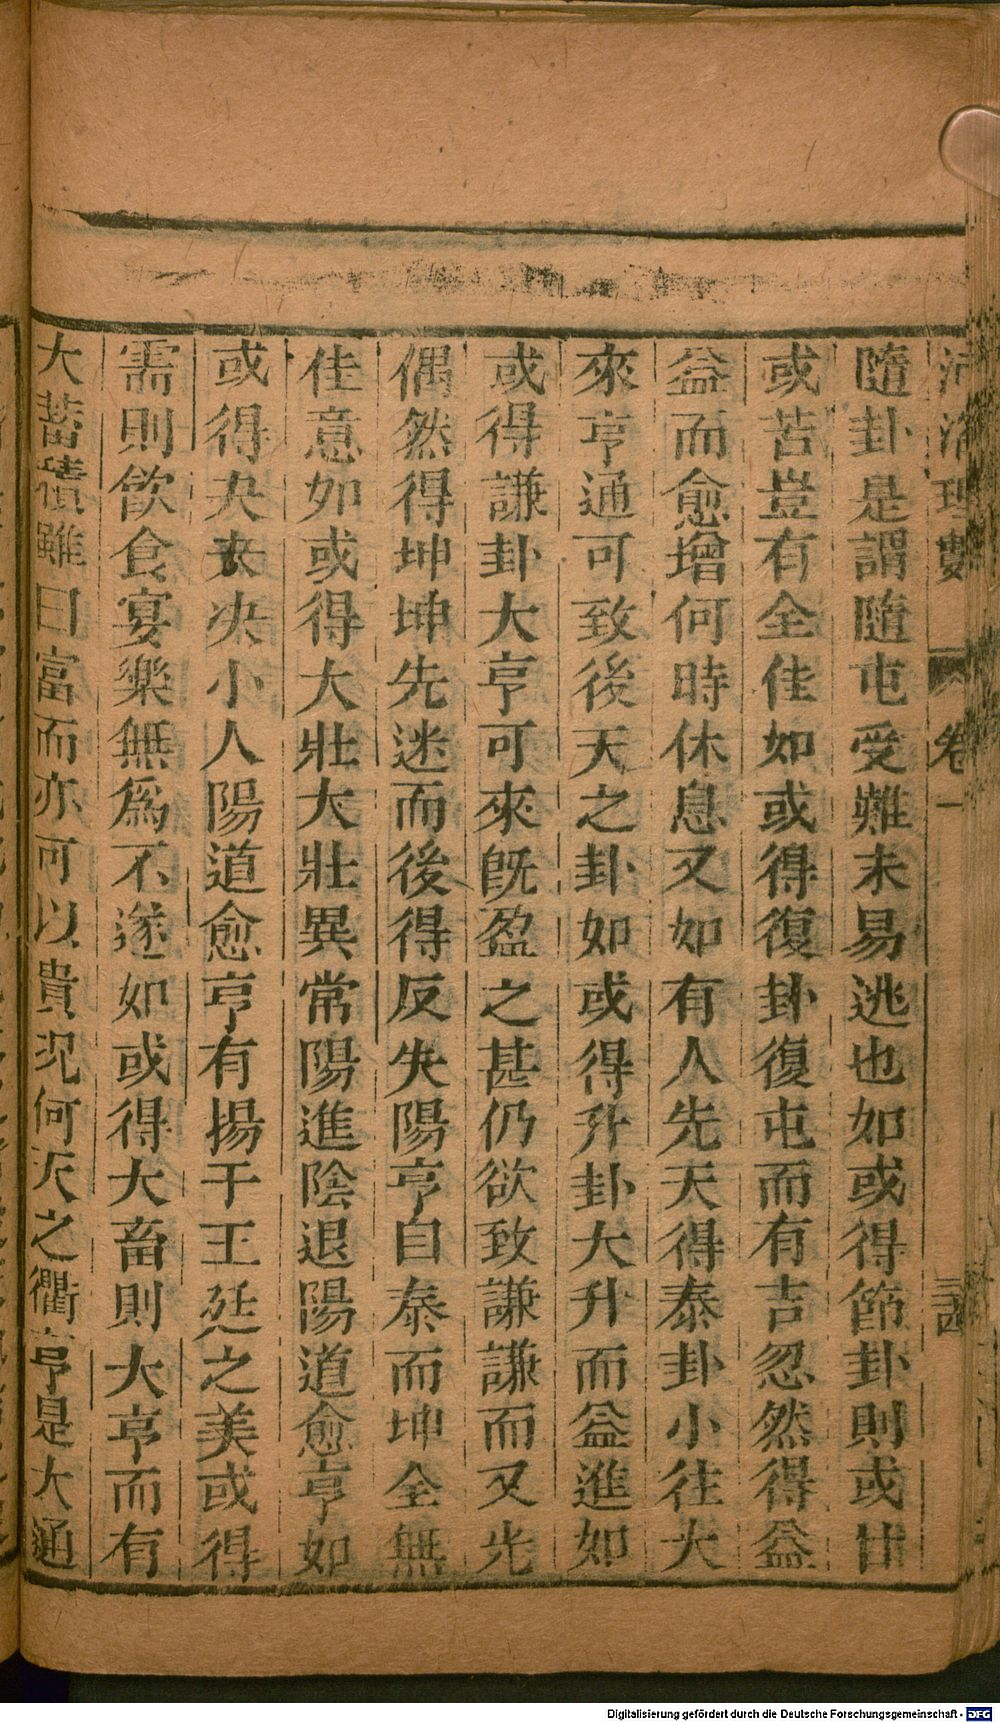 河洛理數
卷一
三四
隨卦是謂隨屯受難未易逃也如或得節卦則或甘
或苦豈有全佳如或得復卦復屯而有吉忽然得益
益而愈增何時休息又如有人先天得泰卦小往大
來亨通可致後天之卦如或得升卦大升而益進如
或得謙卦大亨可來旣盈之甚仍欲致謙謙而又光
偶然得坤坤先迷而後得反失陽亨自泰而坤全無
佳意如或得大壯大壯異常陽進陰退陽道愈亨如
或得夬夬決小人陽道愈亨有揚于王廷之美或得
需則飲食宴樂無爲不遂如或得大畜則大亨而有
大蓄積雖曰富而亦可以貴况何天之衢亨是大通
Digitalisierung gefördert durch die Deutsche Forschungsgemeinschaft - DFG